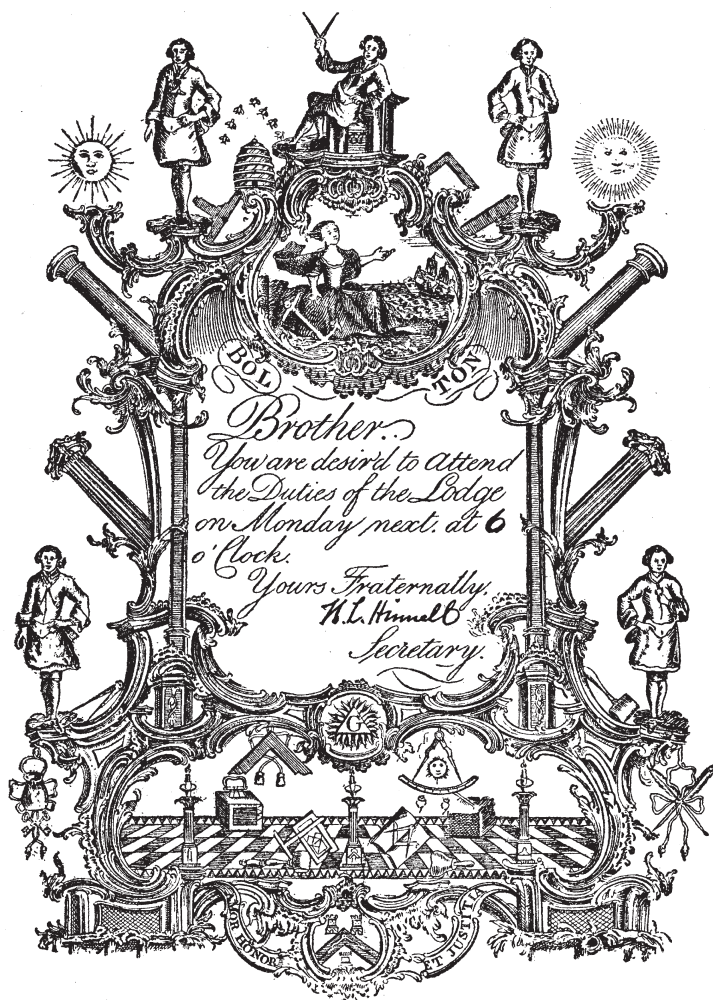 BOL TON
Brother.
You are desir'd to attend
the Duties of the Lodge
on Monday next. at 6
o'Clock.
Yours Fraternally.
Secretary.
G
HONOR ET JUSTITIA